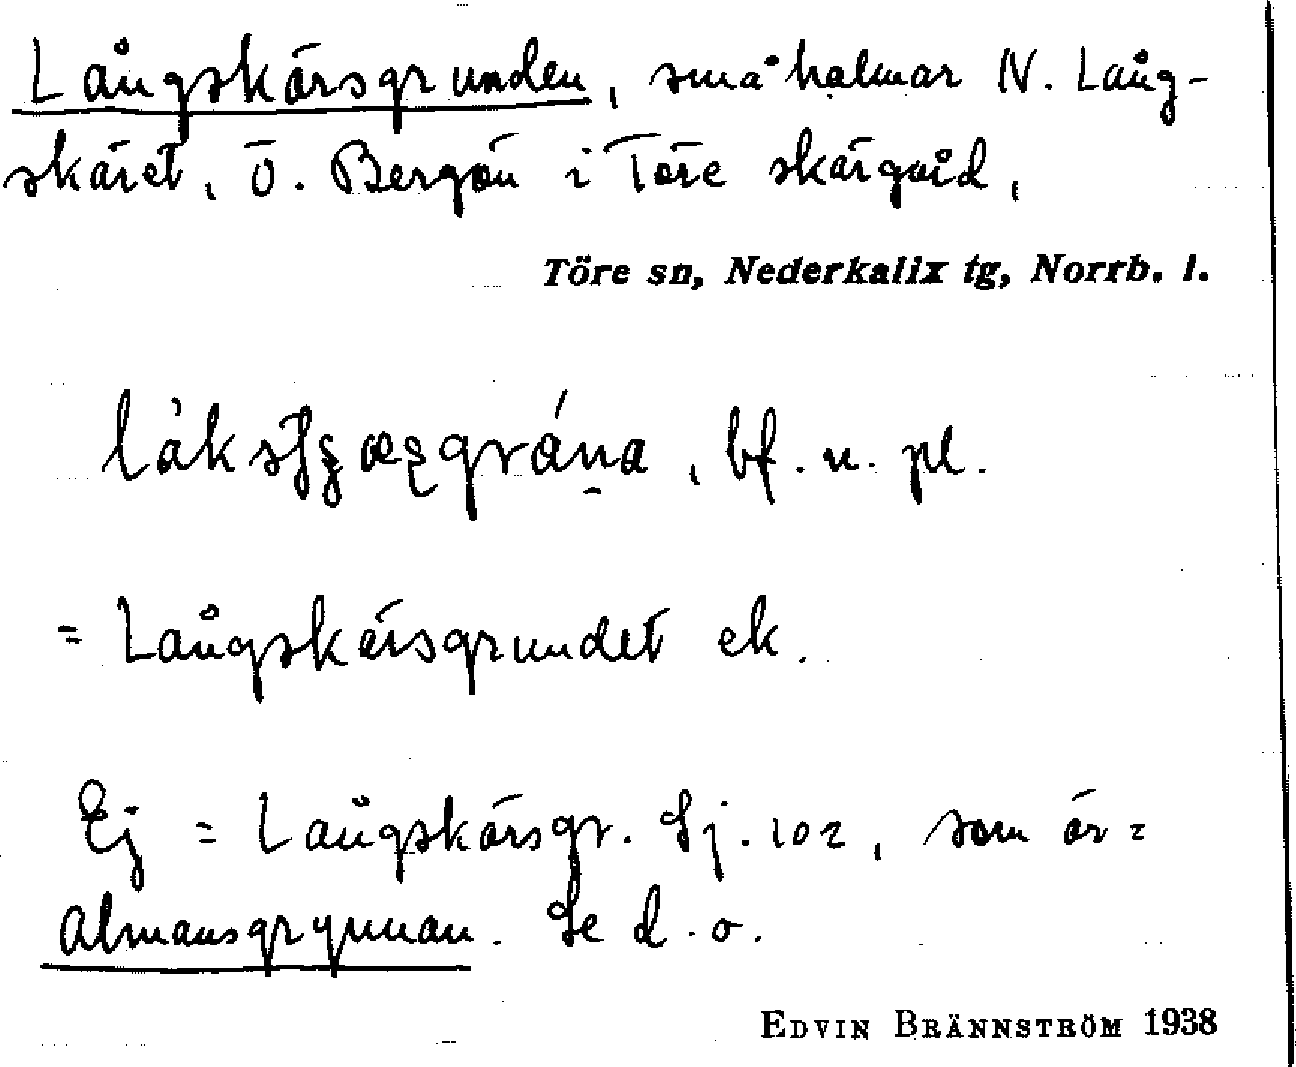 Långskärsgrunden, små holmar N. Lång-
skäret, Ö. Bergön i Töre skärgård,
Töre sn, Nederkalix tg, Norrb. l.
bf. n. pl.
= Långskärsgrundet ek.
Ej = Långskärsgr. Sj. 102, som är =
Almansgrynnan. Se d. o.
EDVIN BRÄNNSTRÖM 1938